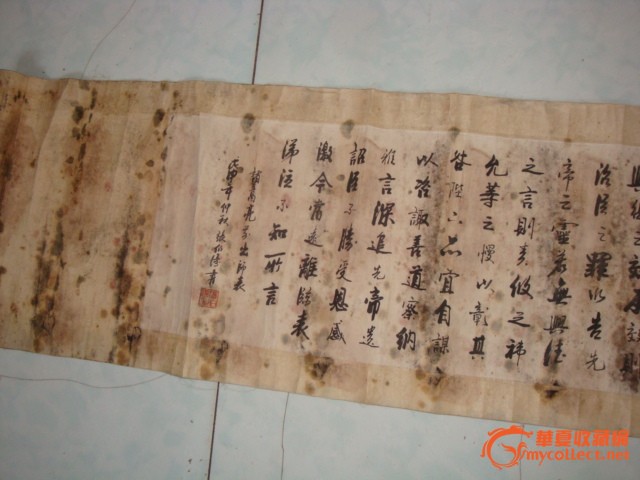 治臣之罪以告先
帝之靈若無興德
之言則責攸之禕
允等之慢以彰其
咎陛下亦宜自謀
以咨諏善道察納
雅言深追先帝遺
詔臣不勝受恩感
激今當遠離臨表
涕泣不知所言
諸葛亮前出師表
華夏收藏網
mycollect.net